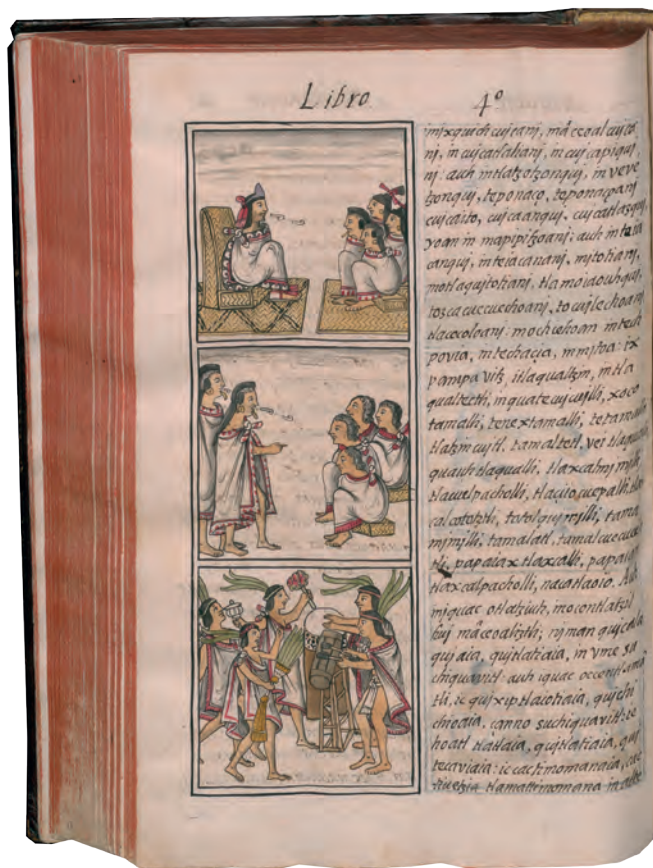 Libro 4º
mixquich cujcanj, mâceoal cujca
nj, in cujcatlalianj, in cujcapiquj
nj: auh in tlatzotzonquj, in veve
tzonquj, teponaço, teponaçoanj
cujcaito, cujcaanquj, cujcatlazquj,
yoan in mapipitzoanj: auh in
canquj, in teiacananj, mjtotianj,
motlaqujtotianj, tlamoiaouhquj,
tozcacuecuechoanj, tocujlechoanj
tlacocoloanj: mochiehoan in tech
povia, in techacia, in mitoa: ix
pampa vitz, itlaqualtzin, in tla
qualteuth, in quatecujcujlli, xoco
tamalli, tenextamalli,
tlatzincujtl, tamaltetl, vei
quauhtlaqualli, tlaxcalmjmjlli,
tlacuelpacholli, tlacuecuepalli,
totolqujmilli, tama
mjmjlli, tamalatl,
tli, papaiaxtlaxcalli,
tlaxcalpacholli, nacatlaoio. Auh
in iquac otlatziuh, mocontlatzil
huj mâceoaliztli; njman
qujaia, qujtlatiaia, in vme su
chiquavitl: auh iquac occentlamā
tli, ic qujxiptlacotiaia, quichi
chioaia, çanno suchiquavitl: ie
hoatl tlatlaia, qujtlatiaia,
tecaviaia: ic cactimomanaia,
tivetzia tlamattimomana in